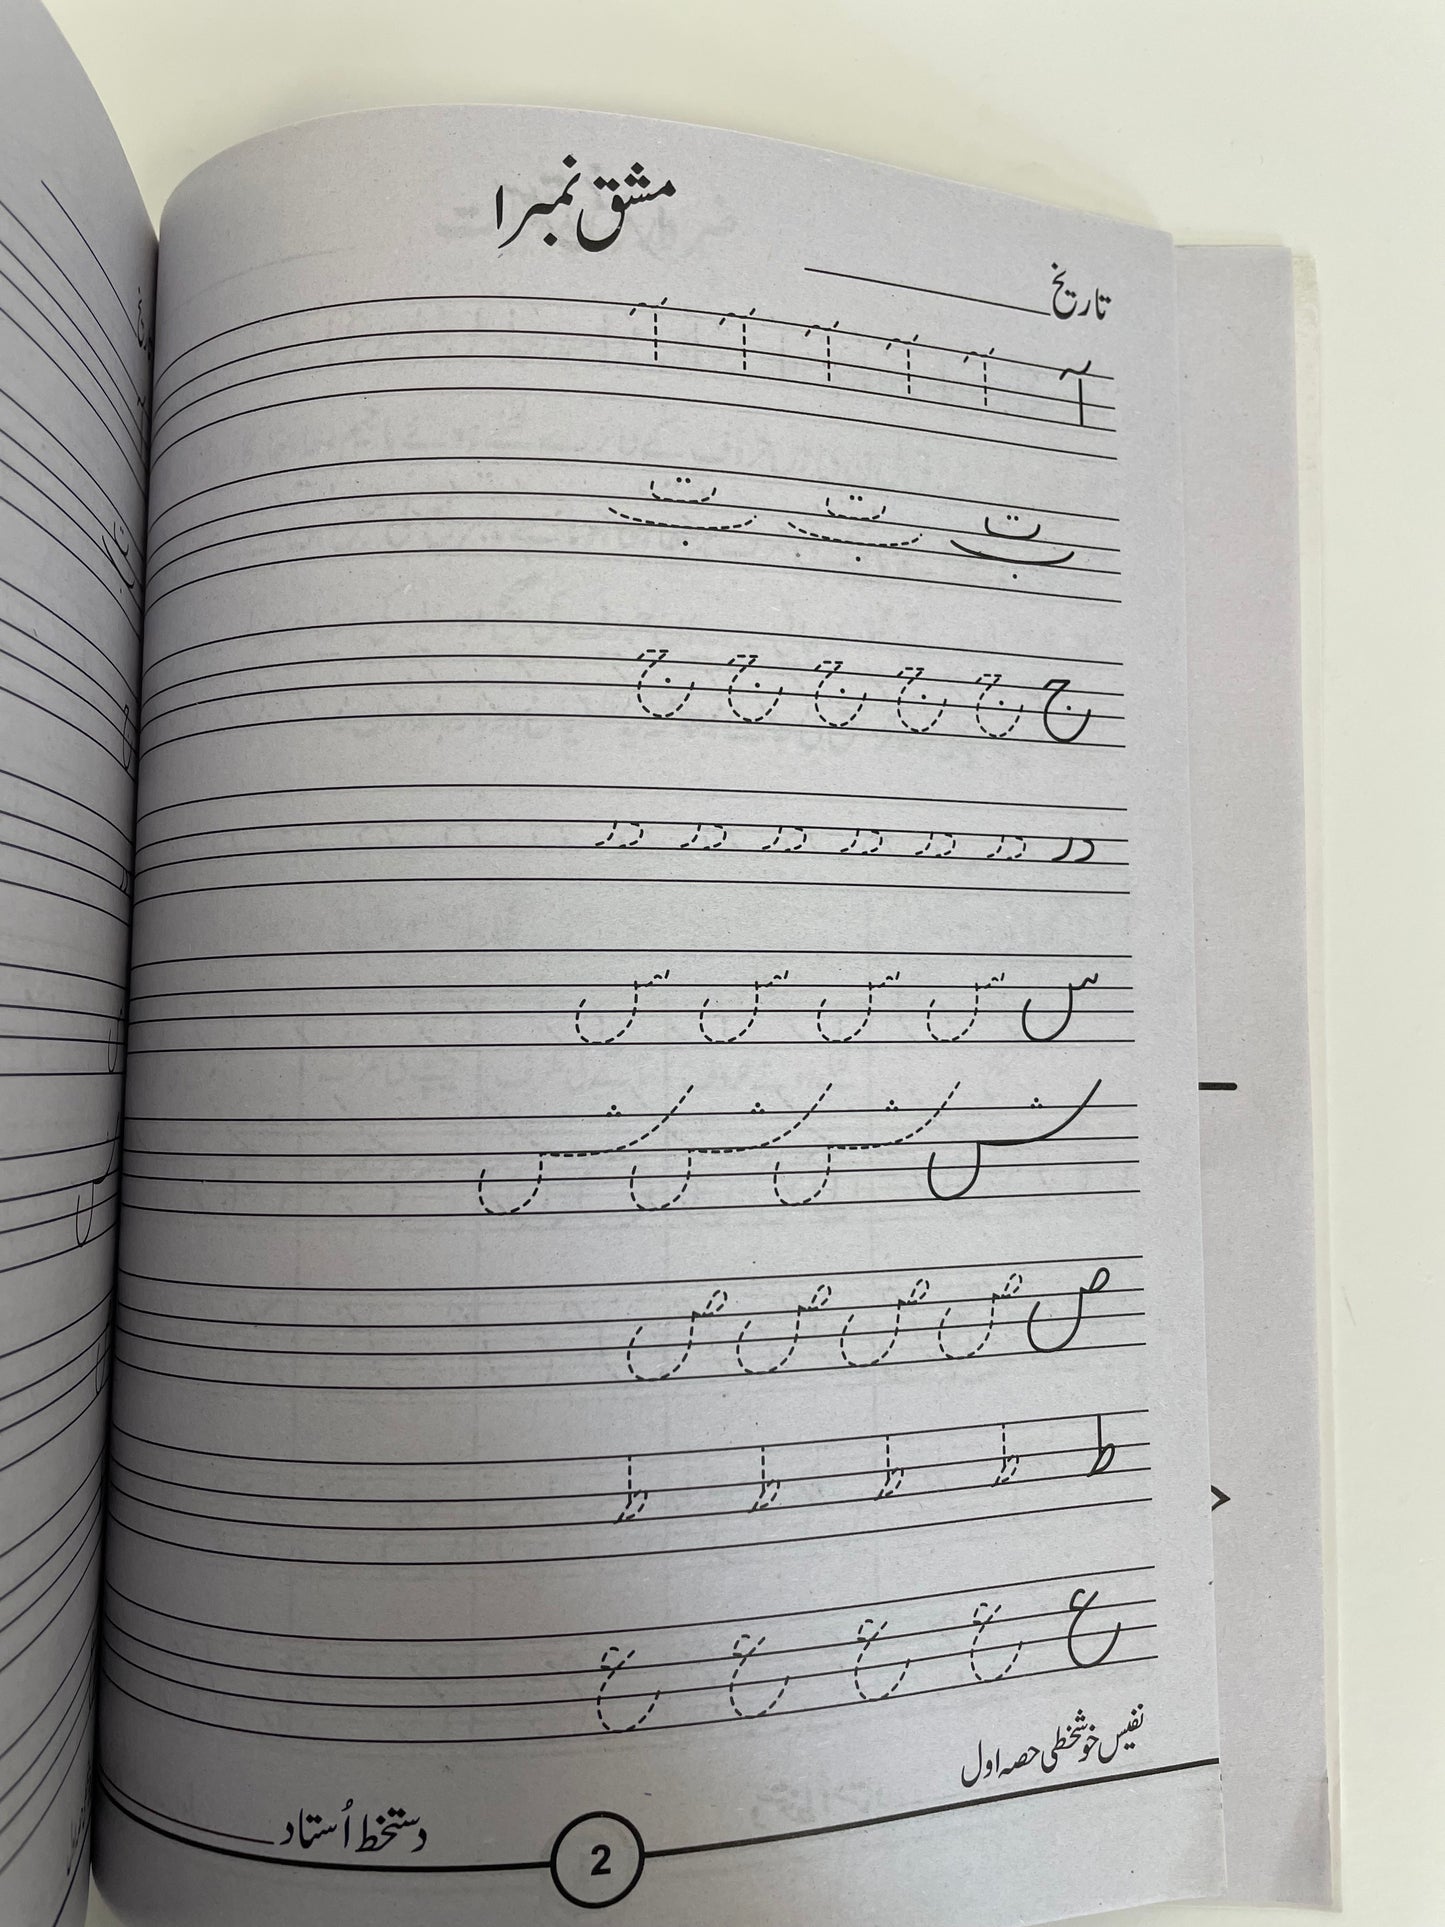 مشق نمبر ۱
تاریخ
آ آ آ آ آ آ
ب ت ب ت ب ت
ج ج ج ج ج ج
در در در در در در در
س س س س س
ش ش ش ش
ص ص ص ص ص
ط ط ط ط ط
ع ع ع ع ع
نفیس خوشخطی حصہ اول
دستخط اُستاد
2